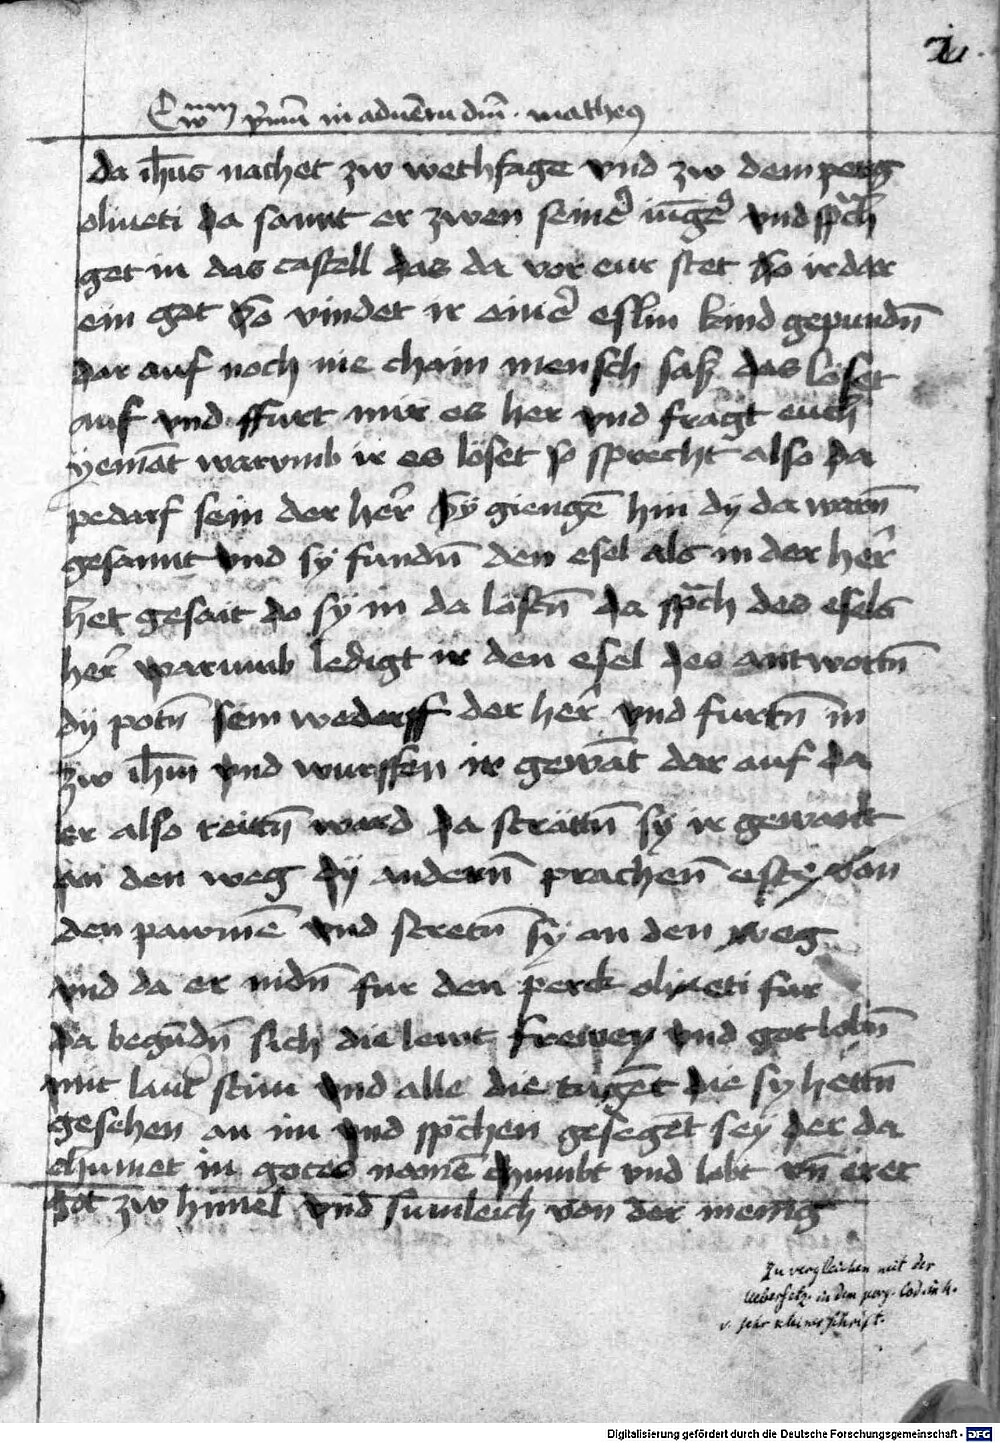 2
Ewm primum in aduentu dni · matheus
da ih̄us nachet zw wethfage vnd zw dem perg
oliueti da sannt er zwen seiner iūger vnd sprach
get in das castell das da vor eur stet So ir dar
ein get So vindet ir einer eslin kind gepundn̄
dar auf noch nie chain mensch sasz das löset
auf vnd ffurt mir es her vnd fragt euch
yemāt warumb ir es löset so sprecht also da
pedarf sein der her̄ Sy giengē hin dy da warn̄
gesannt vnd sy fundn̄ den esel als in der her̄
het gesait do sy in da löstn̄ da sprach des esels
her̄ warumb ledigt ir den esel des antwortn̄
dy potn̄ sein wederff der her̄ vnd furtn̄ in
zw ih̄m vnd wurffen ir gewāt dar auf da
er also reittn̄ ward da strättn̄ sy ir gewant
an den weg dy andern̄ prachen̄ este von
den pawmē vnd stretn̄ sy an den weg
vnd da er nidn̄ fur den perck oliueti fur
da begūdn̄ sich die lewt frewen vnd got lobn̄
mit lautr stim vnd alle die tugēt die sy hettn̄
gesehen an im vnd sprachen gesegēt sey der da
chumet in gotes namē chumbt vnd lobt vn̄ er er
got zw himel vnd sumleich von der menig
Zu vergleichen mit der
Uebersetz. in dem perg. Cod. in 4.
v. sehr kleiner Schrift.
Digitalisierung gefördert durch die Deutsche Forschungsgemeinschaft - DFG